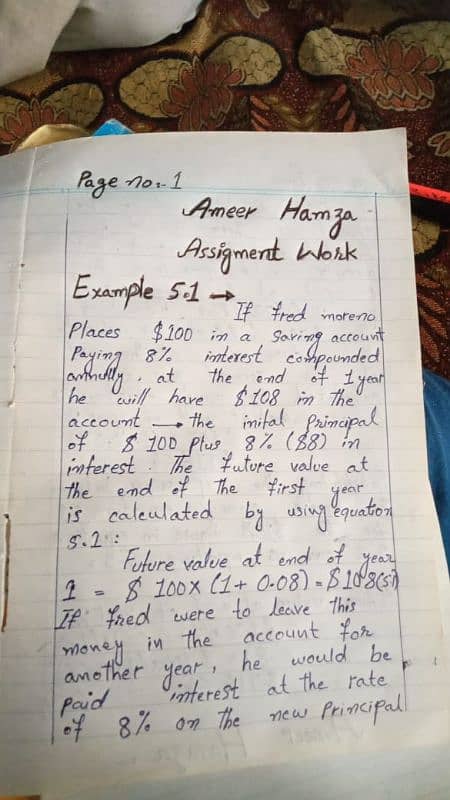 Page no:- 1
Ameer Hamza
Assigment Work
Example 5.1 →
If fred moreno
Places $100 in a Saving account
Paying 8% interest compounded
annully . at the end of 1 year
he will have $108 in The
account → the inital Principal
of $ 100 Plus 8% ($8) in
interest . The future value at
the end of The first year
is calculated by using equation
5.1 :
Future value at end of year
1 = $ 100 X (1 + 0.08) = $108
If fred were to leave This
money in the account for
another year , he would be
Paid interest at the rate
of 8% on the new Principal